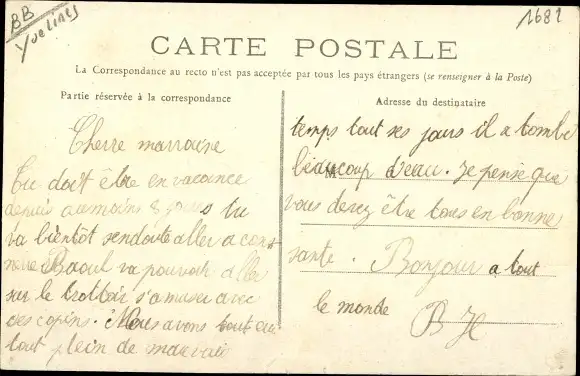 BB
Yvelines
1682
CARTE POSTALE
La Correspondance au recto n'est pas acceptée par tous les pays étrangers (se renseigner à la Poste)
Partie réservée à la correspondance
Adresse du destinataire
Cherre marraine
Tu doit être en vacance
depuis aumoins 8 jours tu
va bientôt sendoute aller a
Raoul va pouvoir aller
sur le trottoir s'amuser avec
ses copins. Nous avons tout eu
tout plein de mauvais
temps tout ses jours il a tombé
beaucoup d'eau. Je pense que
vous devez être tous en bonne
santé. Bonjour a tout
le monde B H